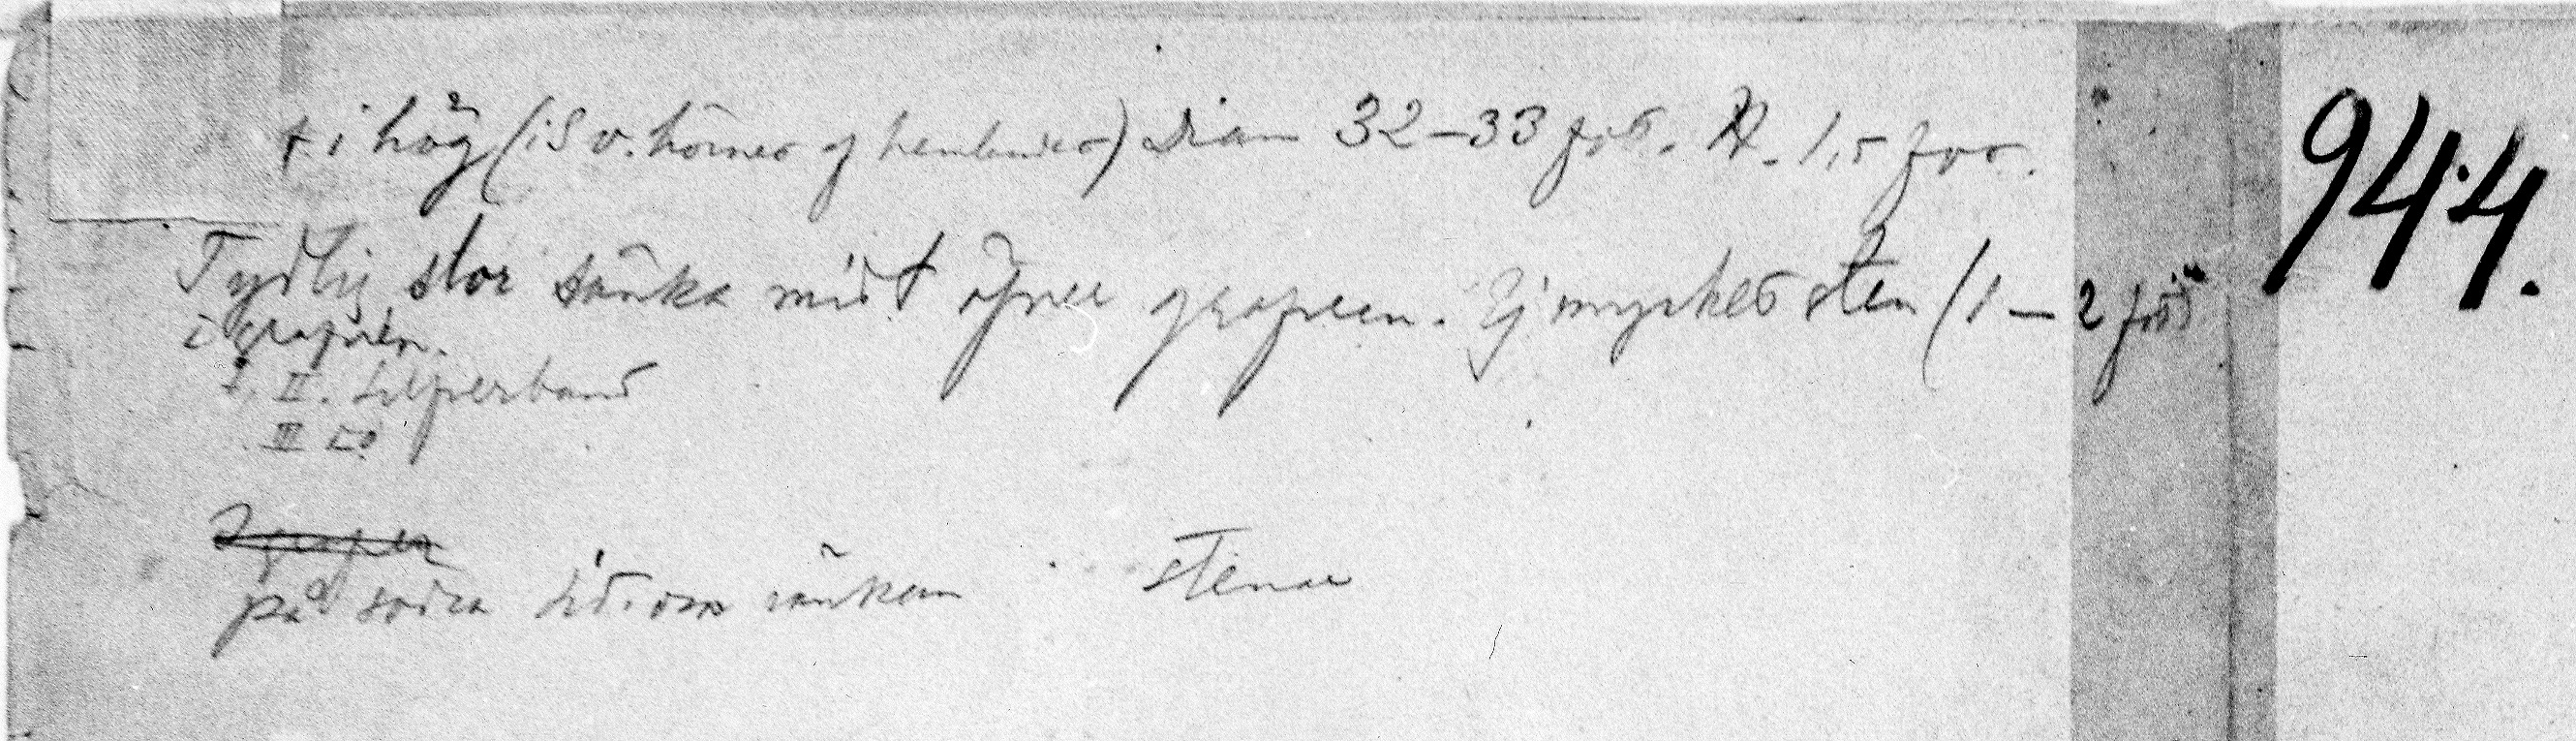 f. i hög (i S v. hörnet af hemlandet) Diam 32–33 fot. H. 1,5 fot.
944.
Tydlig stor sänka midt öfver grafven. Ej mycket sten (1–2 fot
i grafven.
I, II. Silfverband
III do
på södra sid. om sänkan stenar